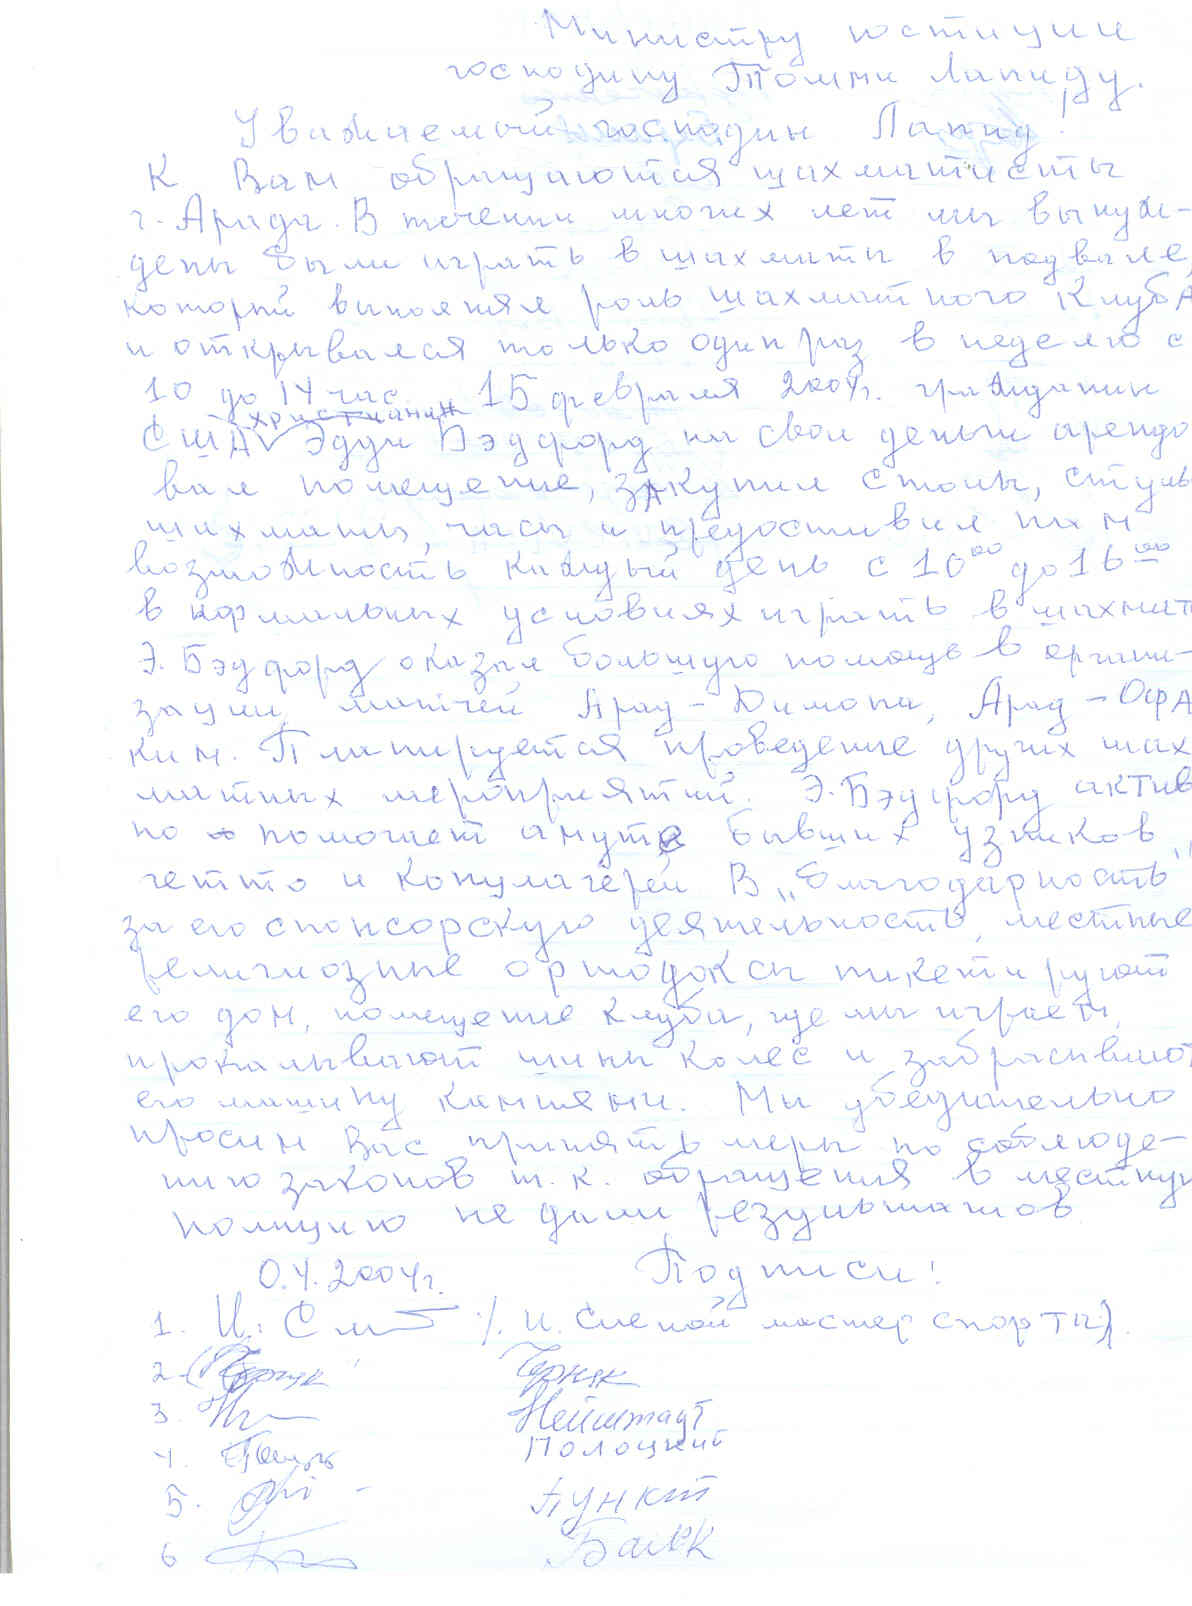 Министру юстиции
господину Томми Лапиду.
Уважаемый господин Лапид!
К Вам обращаются шахматисты
г. Арада. В течении многих лет мы вынуж-
дены были играть в шахматы в подвале,
который выполнял роль шахматного клуба
и открывался только один раз в неделю с
10 до 14 час. 15 февраля 2004г. гражданин
христианин
США Эдди Бэдфорд на свои деньги арендо
вал помещение, закупил столы, стулья
шахматы, часы и предоставил нам
возможность каждый день с 10⁰⁰ до 16⁰⁰
в нормальных условиях играть в шахматы
Э. Бэдфорд оказал большую помощь в органи-
зации матчей Арад - Димона, Арад - Офа
ким. Планируется проведение других шах
матных мероприятий. Э. Бэдфорд актив
но помогает амуте бывших узников
гетто и концлагерей В „благодарность"
за его спонсорскую деятельность, местные
религиозные ортодоксы пикетируют
его дом, помещение клуба, где мы играем,
прокалывают шины колес и забрасывают
его машину камнями. Мы убедительно
просим Вас принять меры по соблюде-
нию законов т.к. обращения в местную
полицию не дали результатов
0.4.2004г. Подписи:
1. И. Слепой мастер спорта).
2 Черняк
3. Нейштадт
4. Полоцкий
5. Пункт
6